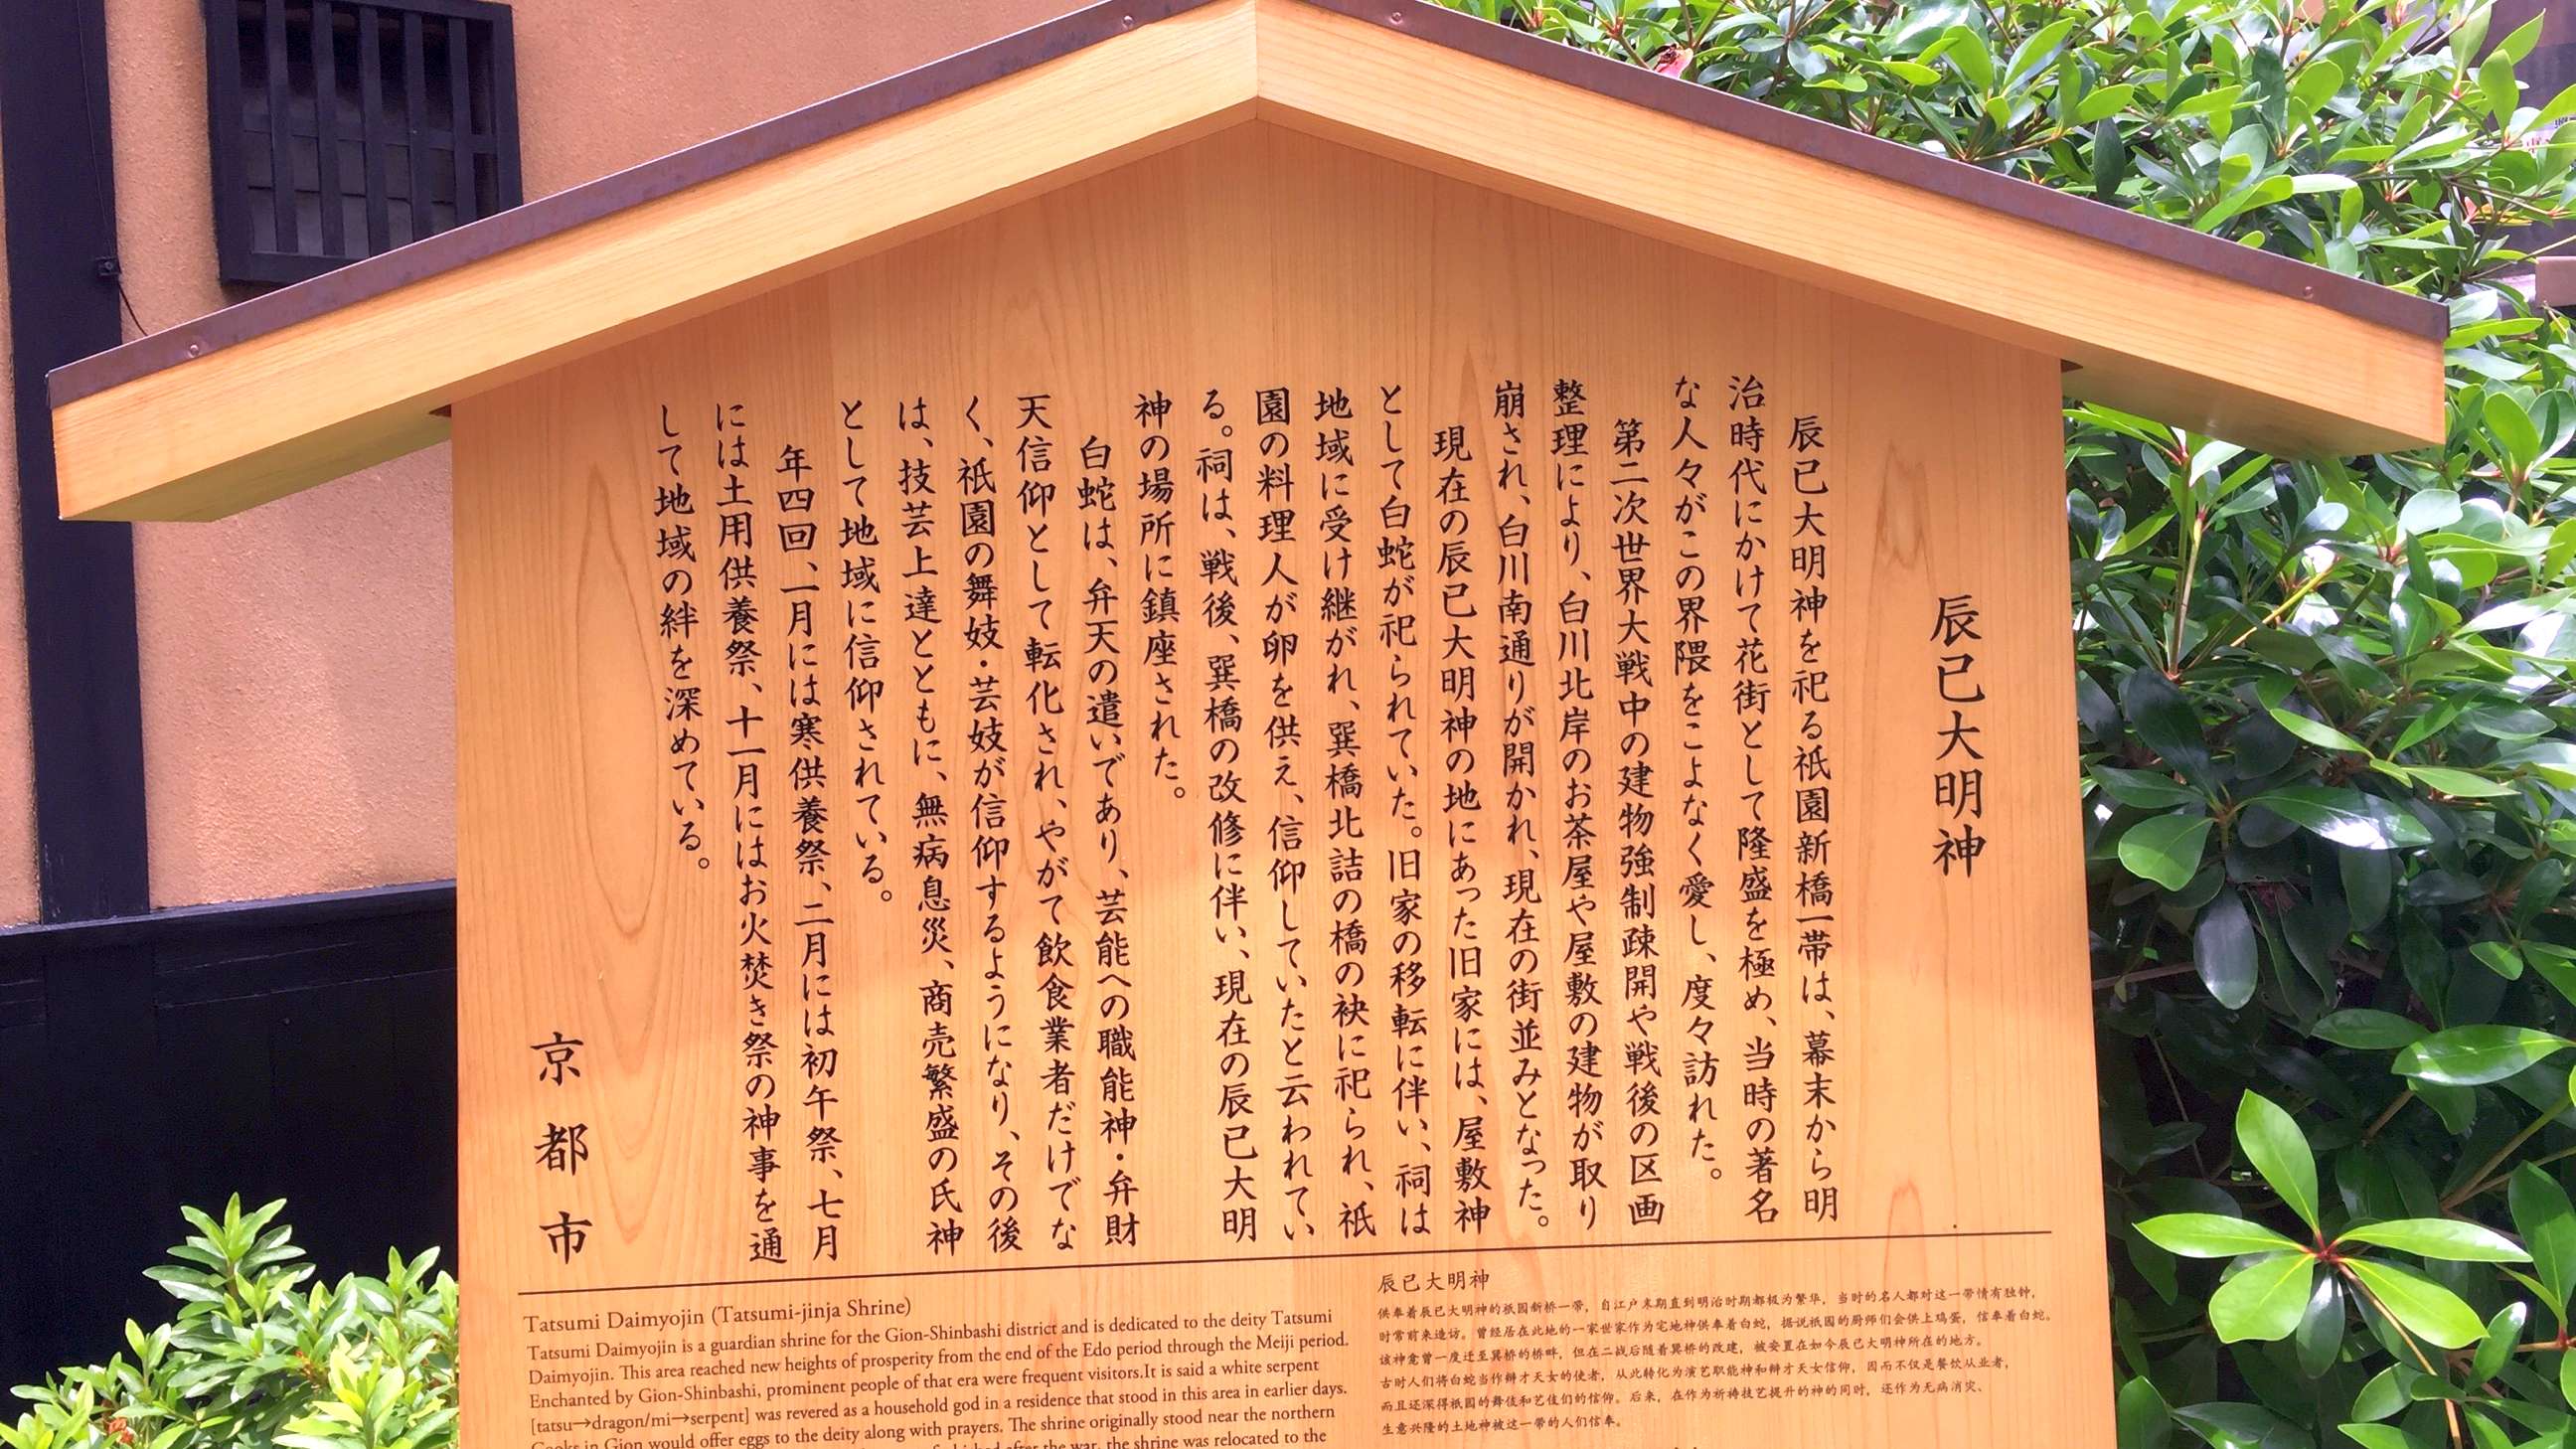 辰巳大明神
辰巳大明神を祀る祇園新橋一帯は、幕末から明
治時代にかけて花街として隆盛を極め、当時の著名
な人々がこの界隈をこよなく愛し、度々訪れた。
第二次世界大戦中の建物強制疎開や戦後の区画
整理により、白川北岸のお茶屋や屋敷の建物が取り
崩され、白川南通りが開かれ、現在の街並みとなった。
現在の辰巳大明神の地にあった旧家には、屋敷神
として白蛇が祀られていた。旧家の移転に伴い、祠は
地域に受け継がれ、巽橋北詰の橋の袂に祀られ、祇
園の料理人が卵を供え、信仰していたと云われてい
る。祠は、戦後、巽橋の改修に伴い、現在の辰巳大明
神の場所に鎮座された。
白蛇は、弁天の遣いであり、芸能への職能神・弁財
天信仰として転化され、やがて飲食業者だけでな
く、祇園の舞妓・芸妓が信仰するようになり、その後
は、技芸上達とともに、無病息災、商売繁盛の氏神
として地域に信仰されている。
年四回、一月には寒供養祭、二月には初午祭、七月
には土用供養祭、十一月にはお火焚き祭の神事を通
して地域の絆を深めている。
京都市
Tatsumi Daimyojin (Tatsumi-jinja Shrine)
Tatsumi Daimyojin is a guardian shrine for the Gion-Shinbashi district and is dedicated to the deity Tatsumi
Daimyojin. This area reached new heights of prosperity from the end of the Edo period through the Meiji period.
Enchanted by Gion-Shinbashi, prominent people of that era were frequent visitors.It is said a white serpent
[tatsu→dragon/mi→serpent] was revered as a household god in a residence that stood in this area in earlier days.
Cooks in Gion would offer eggs to the deity along with prayers. The shrine originally stood near the northern
after the war, the shrine was relocated to the
辰巳大明神
供奉着辰巳大明神的祇园新桥一带，自江户末期直到明治时期都极为繁华，当时的名人都对这一带情有独钟，
时常前来造访。曾经居在此地的一家世家作为宅地神供奉着白蛇，据说祇园的厨师们会供上鸡蛋，信奉着白蛇。
该神龛曾一度迁至巽桥的桥畔，但在二战后随着巽桥的改建，被安置在如今辰巳大明神所在的地方。
古时人们将白蛇当作辩才天女的使者，从此转化为演艺职能神和辩才天女信仰，因而不仅是餐饮从业者，
而且还深得祇园的舞伎和艺伎们的信仰。后来，在作为祈祷技艺提升的神的同时，还作为无病消灾、
生意兴隆的土地神被这一带的人们信奉。